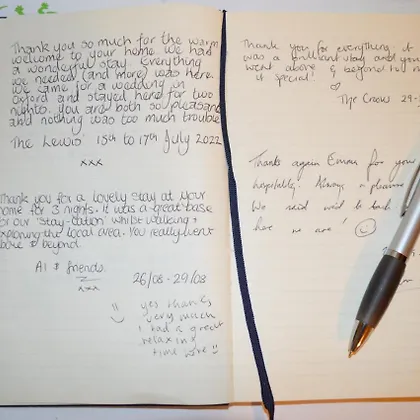 Thank you so much for the warm
welcome to your home. We had
a wonderful stay. Everything
we needed (and more) was here.
We came for a wedding in
Oxford and stayed here for two
nights. You are both so pleasant
and nothing was too much trouble
The Lewis' 15th to 17th July 2022
xxx
Thank you for a lovely stay at your
home for 3 nights. It was a great base
for our 'stay-cation' whilst walking +
exploring the local area. You really went
above & beyond.
Al & friends. 26/08 - 29/08
xxx
yes thanks,
very much
I had a great
relaxing
time here
Thank you for everything, it
was a brilliant stay and you
went above & beyond to
it special!
The Crows 29-
Thanks again for your
hospitality. Always a pleasure
We said we'd be back
here we are!